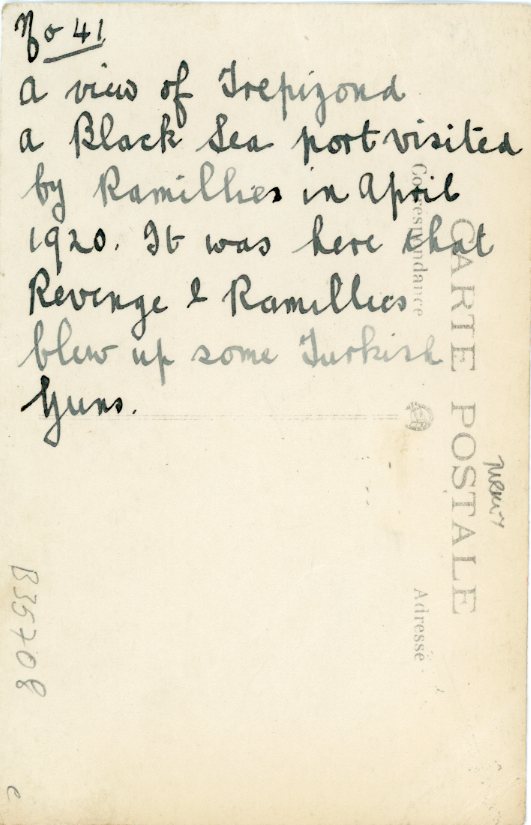 No 41
A view of Trepizond
a Black Sea port visited
by Ramillies in April
1920. It was here that
Revenge & Ramillies
blew up some Turkish
Guns.
CARTE POSTALE
Correspondance
Adresse
TURKEY
B35708
e